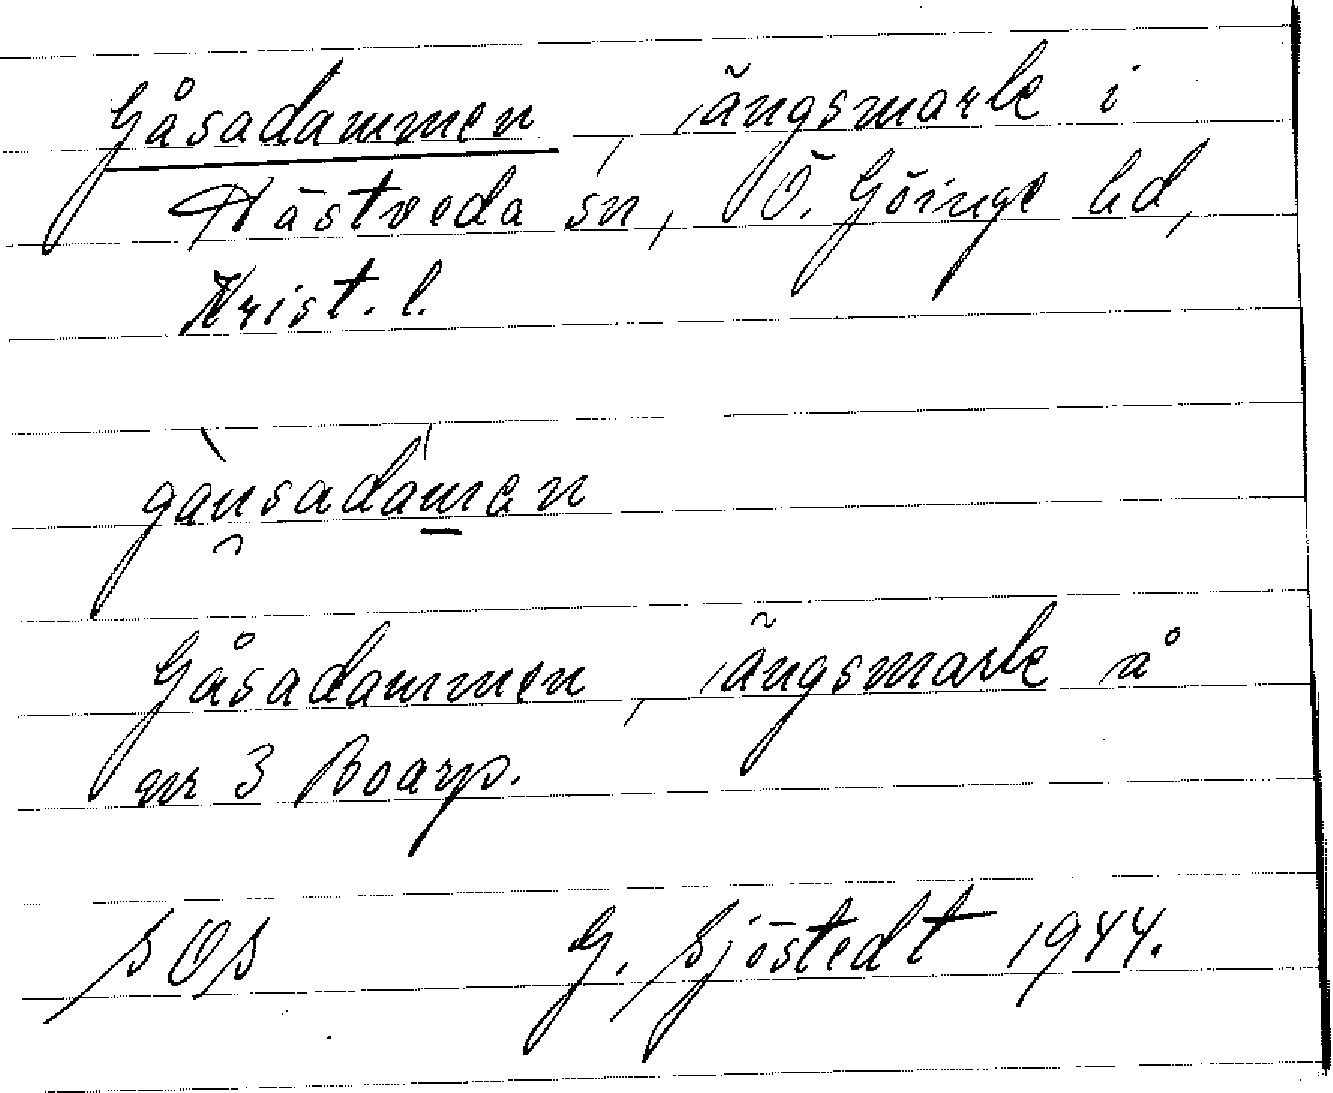 Gåsadammen, ängsmark i
Hästveda sn, Ö. Göinge hd,
Krist. l.
gàu̯sadámen
Gåsadammen, ängsmark å
nr 3 Boarp.
SOS G. Sjöstedt 1944.